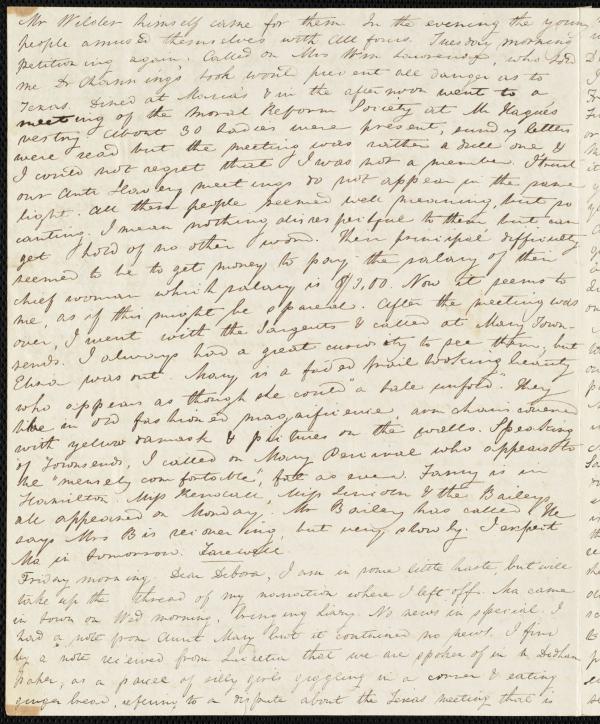 Mr Wilder himself came for them. In the evening the young
people amused themselves with All fours. Tuesday morning
petitioning again. Called on Mrs Wm Lawrence, who told
me Dr Channing's book wont prevent all danger as to
Texas. Dined at Maria's & in the afternoon went to a
meeting of the Moral Reform Society at Mr Hague's
vestry. About 30 ladies were present, sundry letters
were read but the meeting was rather a dull one &
I could not regret that I was not a member. I trust
our Anti Slavery meetings do not appear in the same
light. All these people seemed well meaning, but so
canting. I mean nothing disrespectful to them but can
get hold of no other word. Their principal difficulty
seemed to be to get money to pay the salary of their
chief woman which salary is $3,00. Now it seems to
me, as if this might be spared. After the meeting was
over, I went with the Sargents & called at Mary Town-
sends. I always had a great curiosity to see them, but
Eliza was out. Mary is a faded frail looking beauty
who appears as though she could "a tale unfold." They
live in old fashioned magnificence, arm chairs covered
with yellow damask & pictures on the walls. Speaking
of Townsends, I called on Mary Percival who appears to
be "mensely comfortable", fat as ever. Fanny is in
Hamilton. Miss Lincoln & the Baileys
all appeared on Monday. Mr Bailey has called. He
says Mrs B is recovering, but very slowly. I expect
Ma in tomorrow. Farewell
Friday morning. Dear Debora, I am in some little haste, but will
take up the thread of my narration where I left off. Ma came
in town on Wed morning, bringing No news in special. I
had a note from Aunt Mary but it contained no news. I find
by a note received from Lucretia that we are spoken of in a Dedham
paper, as a parcel of silly girls giggling in a corner & eating
ginger bread, refering to a dispute about the Texas meeting that is